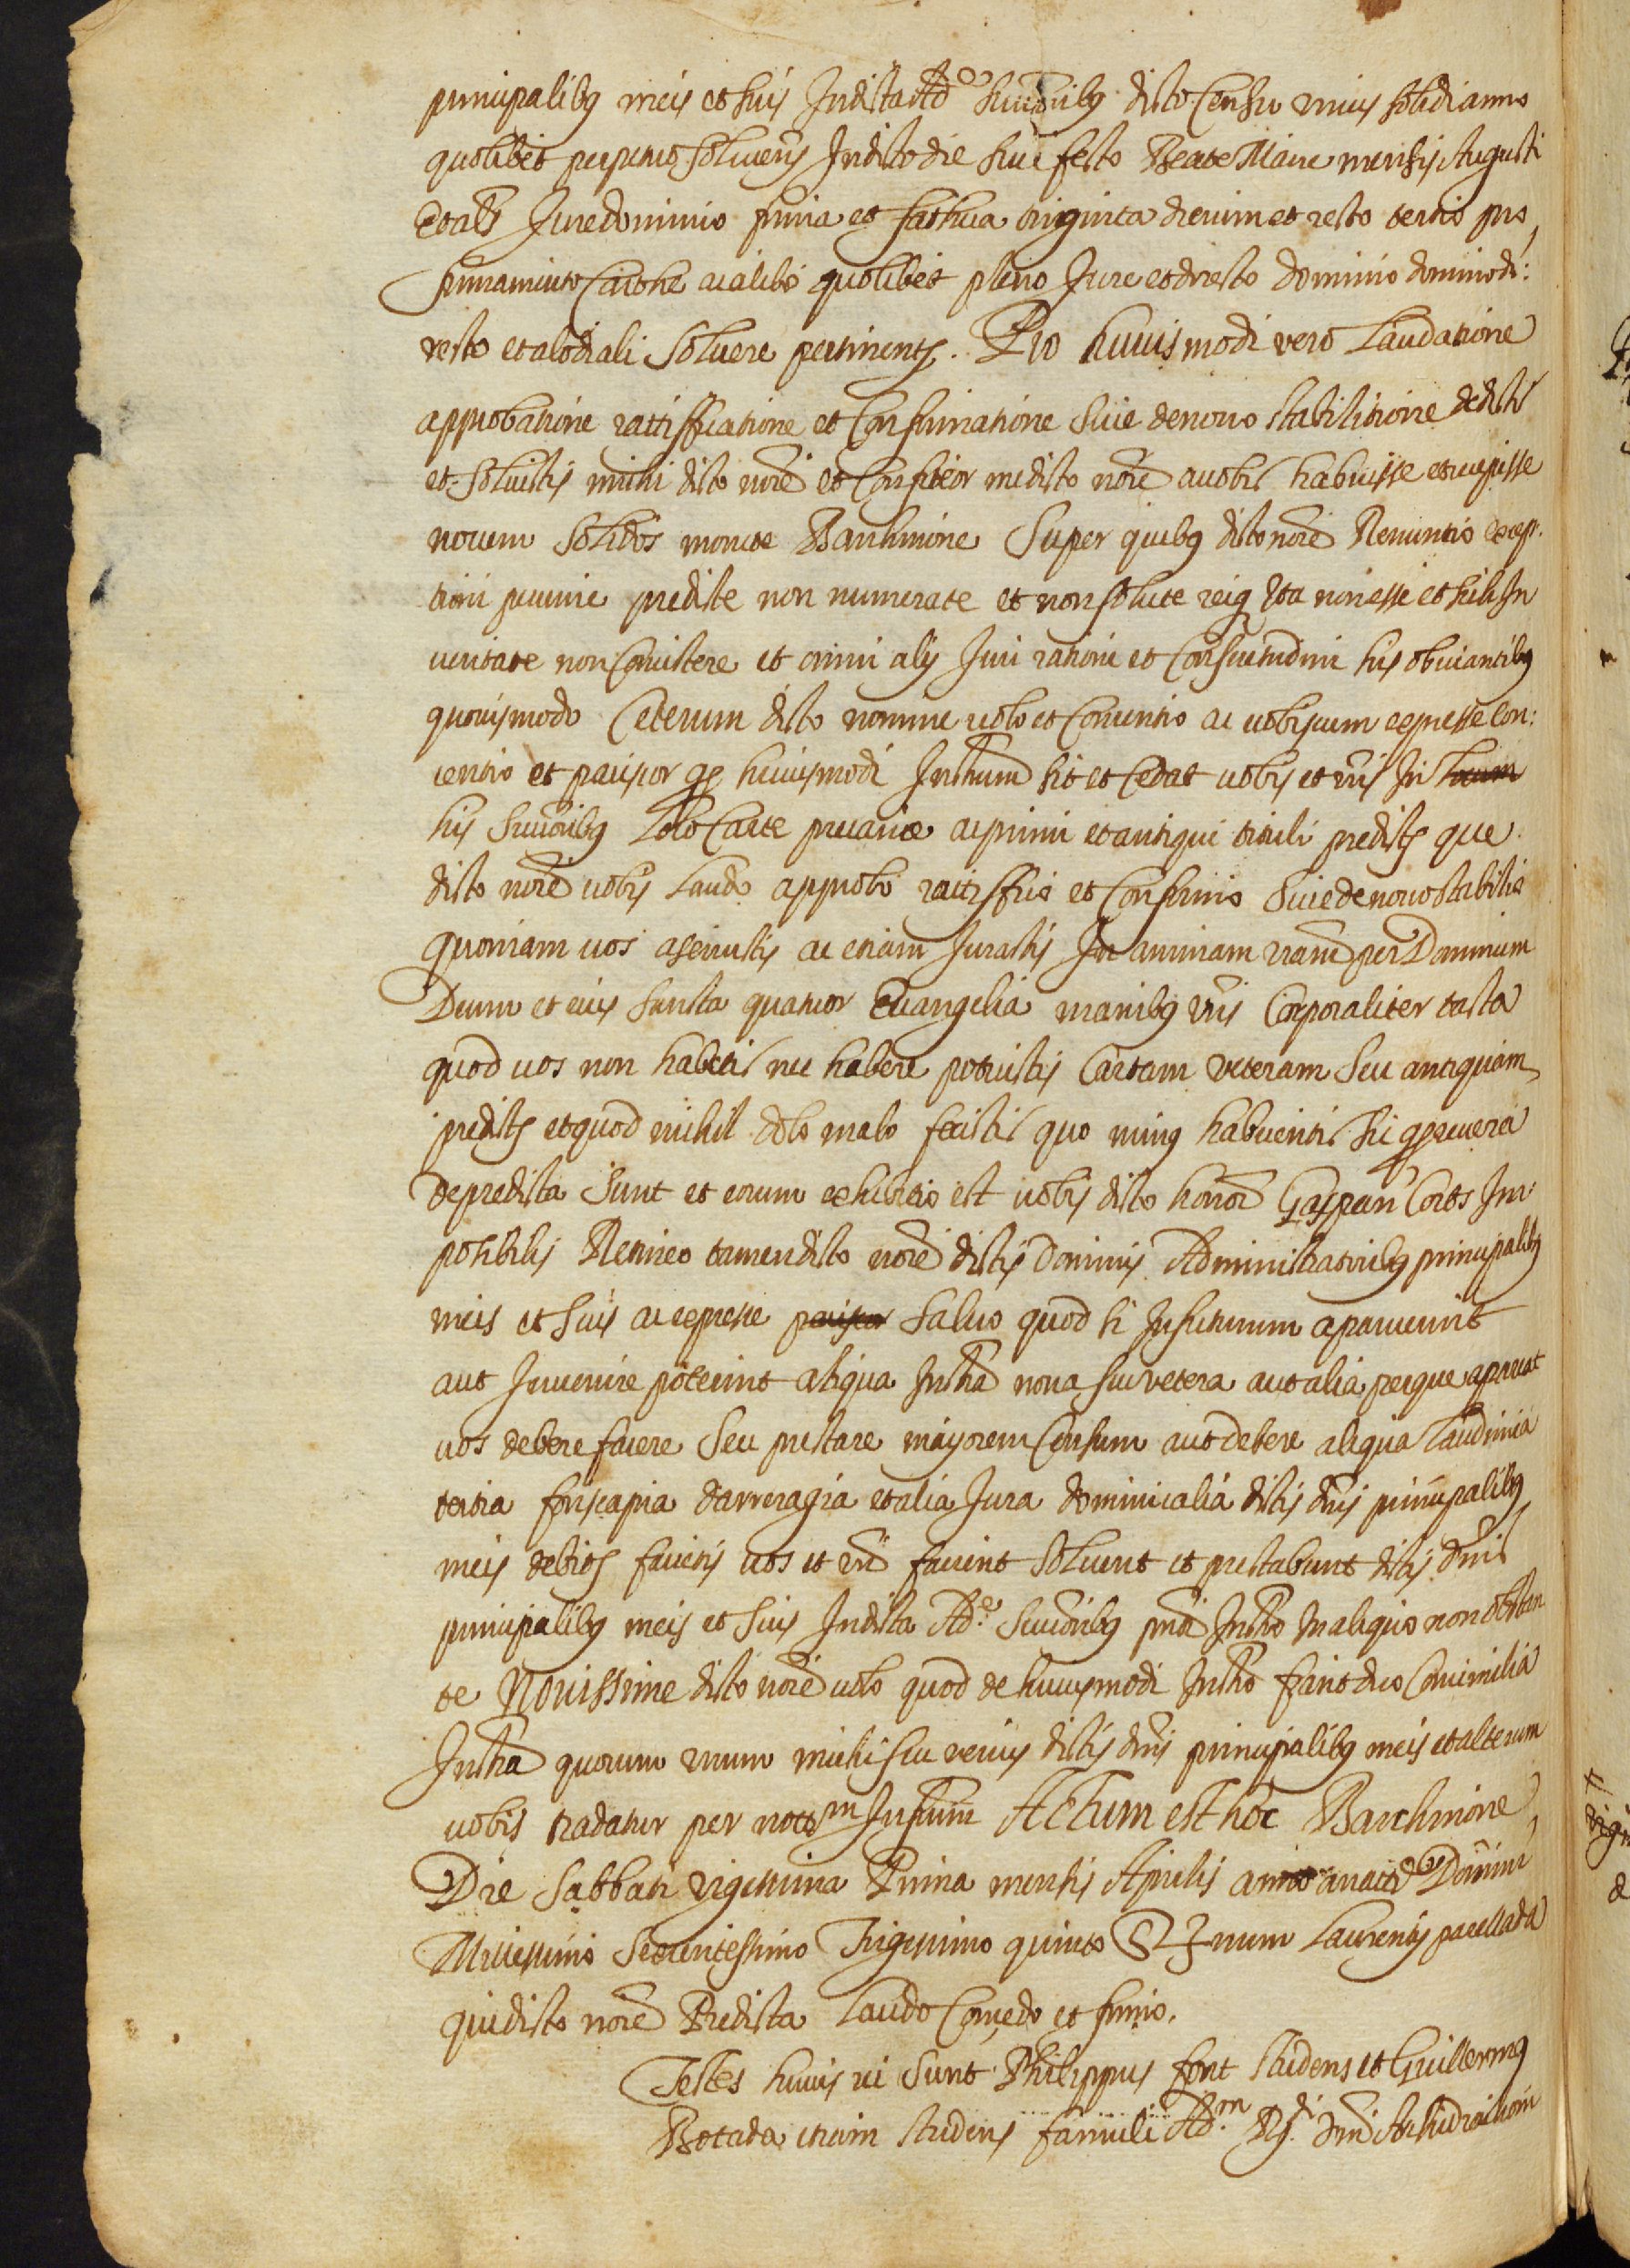 principalibus meis et suis In dicta Adᵒᵉ successoribus dicto Censu unius solidi anno
quolibet perpetuo solvens In dicto die sive festo Beate Marie mensis Augusti
Jure dominio firma et fathica triginta dierum et resto tertio pro
firmamento Carthe ac alibi quolibet pleno Jure et directo dominio domino di:
recto et alodiali Solvere pertinents. Pro huiusmodi vero Laudatione
approbatione rattifficatione et Confirmatione Sive de novo stabilitione dedisti
et solvistis michi dicto noíe et Confiteor me dicto noíe a vobis habuisse et recepisse
novem solidos monete Barchinone Super quibus dicto noíe Renuntio excep:
tioni pecunie predicte non numerate et non solute reiq ita non esse et sic In
veritate non Consistere et omni alij Juri rationi et Consuetudini his obviantibus
quovismodo Ceterum dicto nomine volo et Convenio ac vobiscum expresse Con:
ventio et paciscor qȝ huiusmodi Instrum̄ sit et Cedat vobis et vr̄is In locum
his Successoribus Loco Carte precarie ac primi et antiqui tituli predicts que
dicto noíe vobis Laudo approbo rattiffico et Confirmo Sive de novo stabilio
quoniam vos asseruistis ac etiam Jurastis In animam vr̄am per Dominum
Deum et eius Sancta quatuor Evangelia manibus vr̄is Corporaliter tacta
quod vos non habetis nec habere potuistis Cartam veteram Seu antiquam
predicts et quod nihil dolo malo fecistis quo minus habueritis sic qȝ revera
depredicta Sunt et eorum exhibitio est vobis dicto honor̄ Gaspari Corts Im:
posibilis Retineo tamen dicto noíe dictis Dominis Administratoribus principalibus
meis et Suis ac expresse paciscor Salvo quod si In futurum aparuerint
aut Invenire poterint aliqua Instra nova seu vetera aut alia per que apareat
vos debere facere Seu prestare mayorem Censum aut debere aliqua Laudimia
tertia foriscapia darreragia et alia Jura dominicalia dictis dn̄is principalibus
meis debits facietis vos et vr̄i facient Solvent et prestabunt dictis dn̄is
principalibus meis et Suis In dicta Adᵉ. Successoribus pn̄ti Instro In aliquo non obstan
te Novissime dicto noíe volo quod de huiusmodi Instro fiant duo Consimilia
Instra quorum unum michi seu verius dictis dn̄is principalibus meis et alterum
vobis tradatur per nottᵐ Infrūm Actum est hoc Barchinone
Die Sabbati vigessima Prima mensis Aprilis anno a natᵉ Domini
Millessimo Sexcentessimo Trigessimo quinto Sig✝num Laurentij pacellada
qui dicto noíe Predicta Laudo Concedo et firmo.
Testes huius rei Sunt Philippus font studens et Guillermus
Botada etiam studens famuli Adᵐ. Rᵈⁱ. dn̄i Archidiaconi